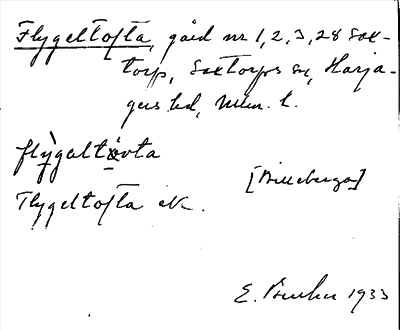 Flygeltofta, gård nr 1, 2, 3, 28 Sax-
torp, Saxtorps sn, Harja-
gers hd, Mlm. l.
flỳgaltåvta
[Billeberga]
Flygeltofta ek.
E. 1933